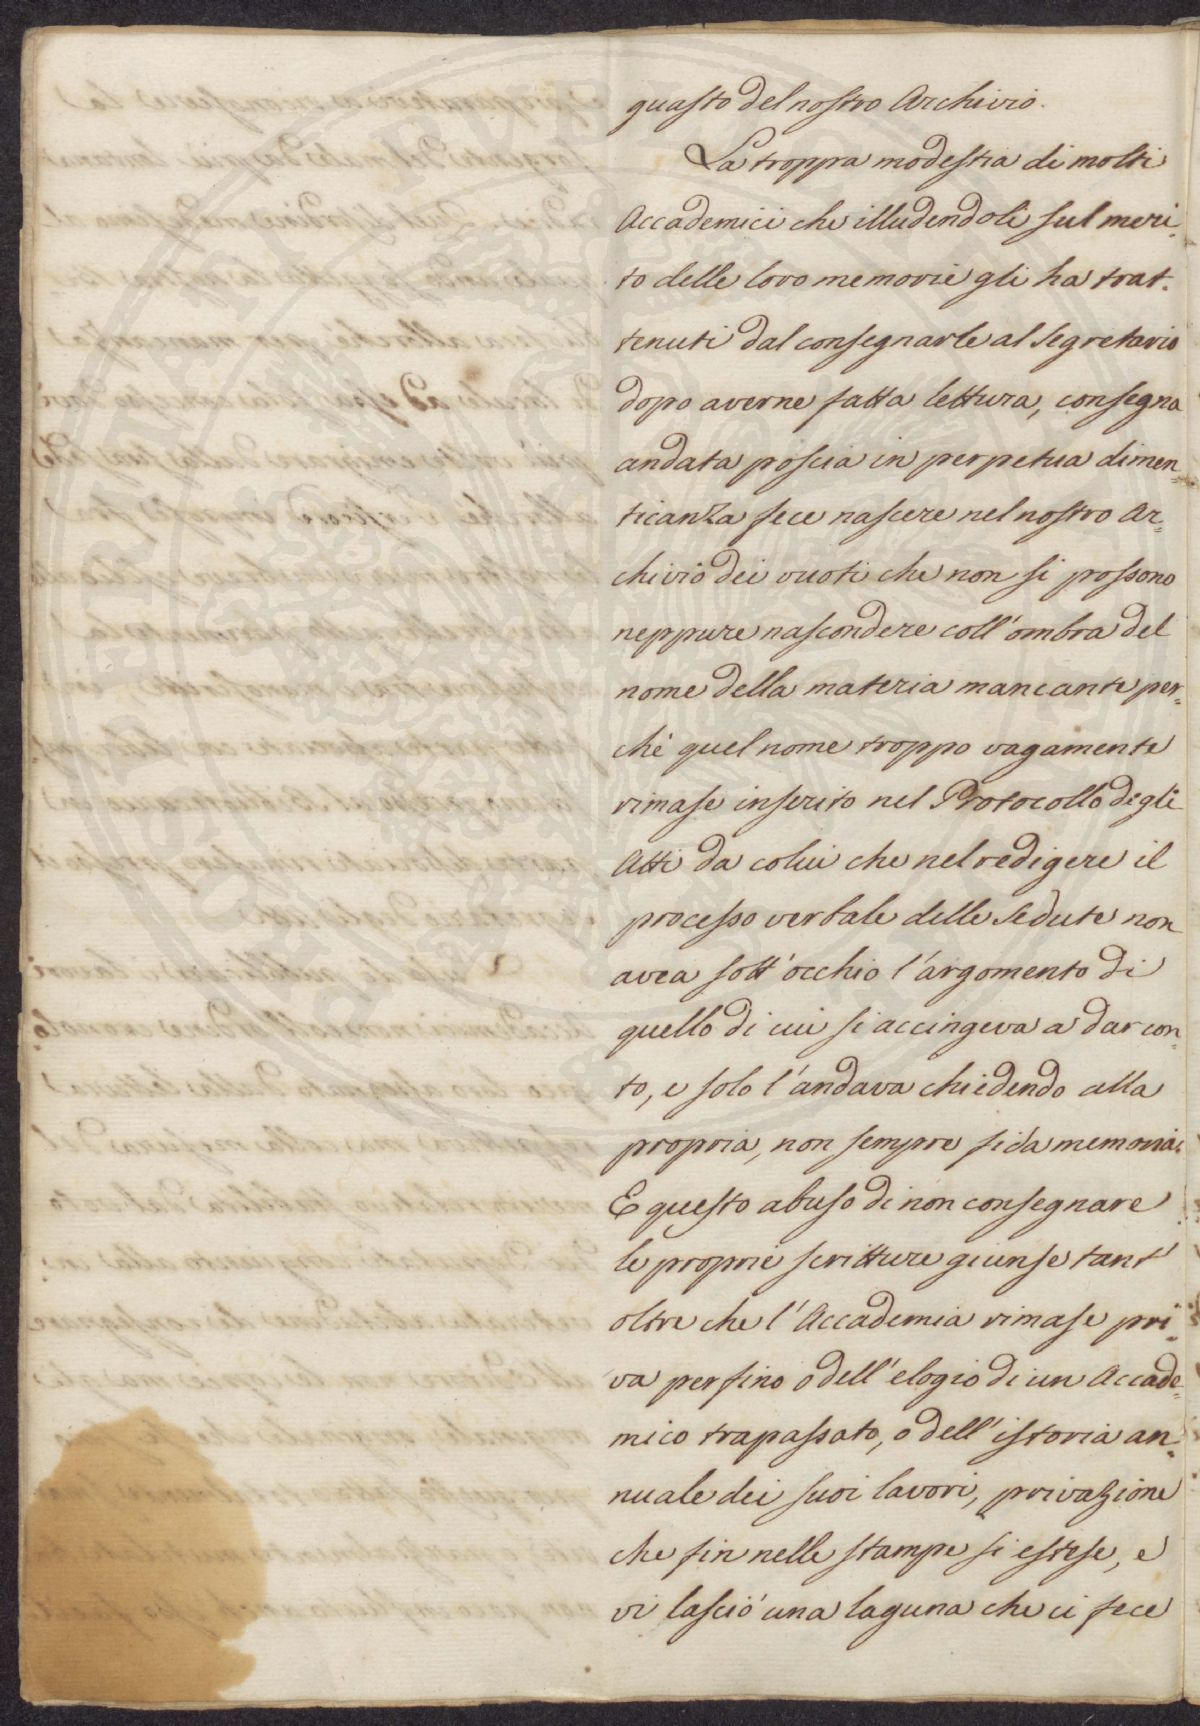 guasto del nostro Archivio.
La troppa modestia di molti
Accademici che illudendoli sul meri-
to delle loro memorie gli ha trat-
tenuti dal consegnarle al Segretario
dopo averne fatta lettura, consegna
andata poscia in perpetua dimen=
ticanza fece nascere nel nostro Ar=
chivio dei vuoti che non si possono
neppure nascondere coll'ombra del
nome della materia mancante per=
chè quel nome troppo vagamente
rimase inserito nel Protocollo degli
Atti da colui che nel redigere il
processo verbale delle Sedute non
avea sott'occhio l'argomento di
quello di cui si accingeva a dar con=
to, e solo l'andava chiedendo alla
propria, non sempre fida memoria.
E questo abuso di non consegnare
le proprie scritture giunse tant'
oltre che l'Accademia rimase pri=
va perfino o dell'elogio di un Accade=
mico trapassato, o dell'istoria an=
nuale dei suoi lavori, privazione
che fin nelle stampe si estese, e
vi lasciò una laguna che ci fece